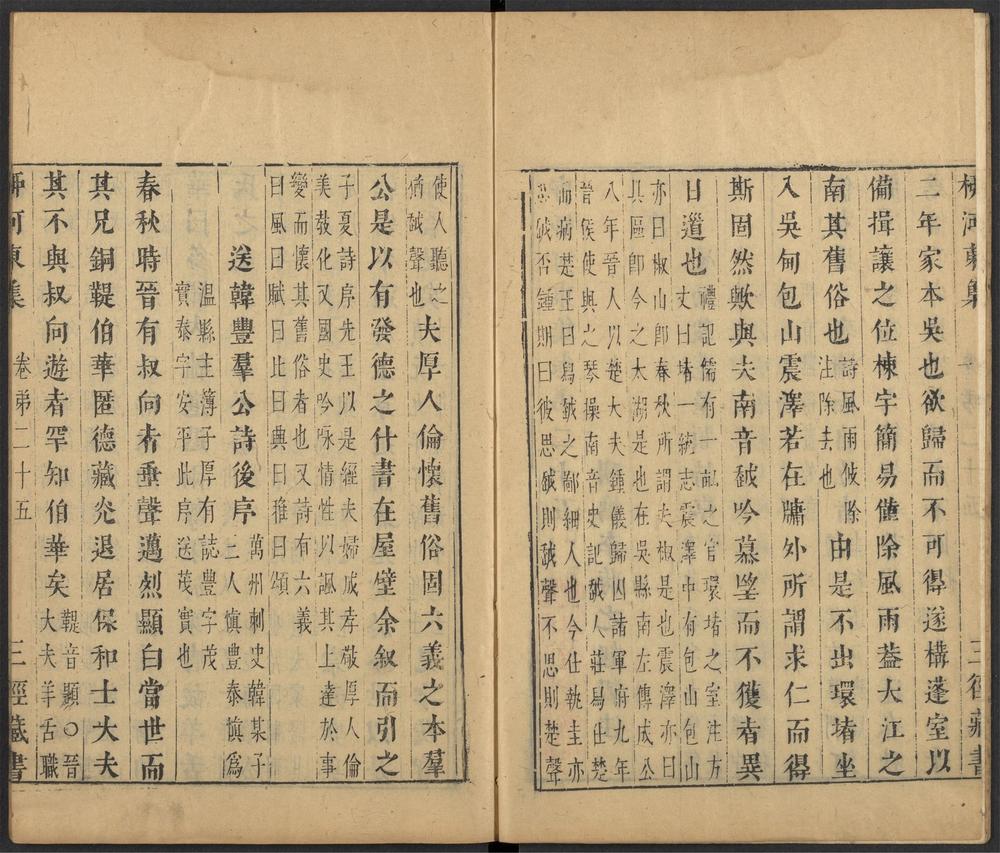 柳河東集
三徑藏書
二年家本吳也欲歸而不可得遂構蓬室以
備揖讓之位棟宇簡易僅除風雨葢大江之
南其舊俗也
詩風雨攸除
注除去也
由是不出環堵坐
入吳甸包山震澤若在牖外所謂求仁而得
斯固然歟與夫南音越吟慕望而不獲者異
日道也
禮記儒有一畝之宮環堵之室注方
丈曰堵一統志震澤中有包山包山
亦曰椒山卽春秋所謂夫椒是也震澤亦曰
具區卽今之太湖是也在吳縣南左傳成公
八年晉人以楚大夫鍾儀歸囚諸軍府九年
晉侯使與之琴操南音史記越人莊舄仕楚
而病楚王曰舄越之鄙細人也今仕執圭亦
思越否鍾期曰彼思越則越聲不思則楚聲
使人聽之
猶越聲也
夫厚人倫懷舊俗固六義之本羣
公是以有發德之什書在屋壁余叙而引之
子夏詩序先王以是經夫婦成孝敬厚人倫
美敎化又國史吟咏情性以諷其上達於事
變而懷其舊俗者也又詩有六義
曰風曰賦曰比曰興曰雅曰頌
送韓豐羣公詩後序
萬州刺史韓某子
二人愼豐泰愼爲
溫縣主簿子厚有誌豐字茂
實泰字安平此序送茂實也
春秋時晉有叔向者垂聲邁烈顯白當世而
其兄銅鞮伯華匿德藏光退居保和士大夫
其不與叔向遊者罕知伯華矣
鞮音顯〇晉
大夫羊舌職
柳河東集
卷第二十五
三徑藏書